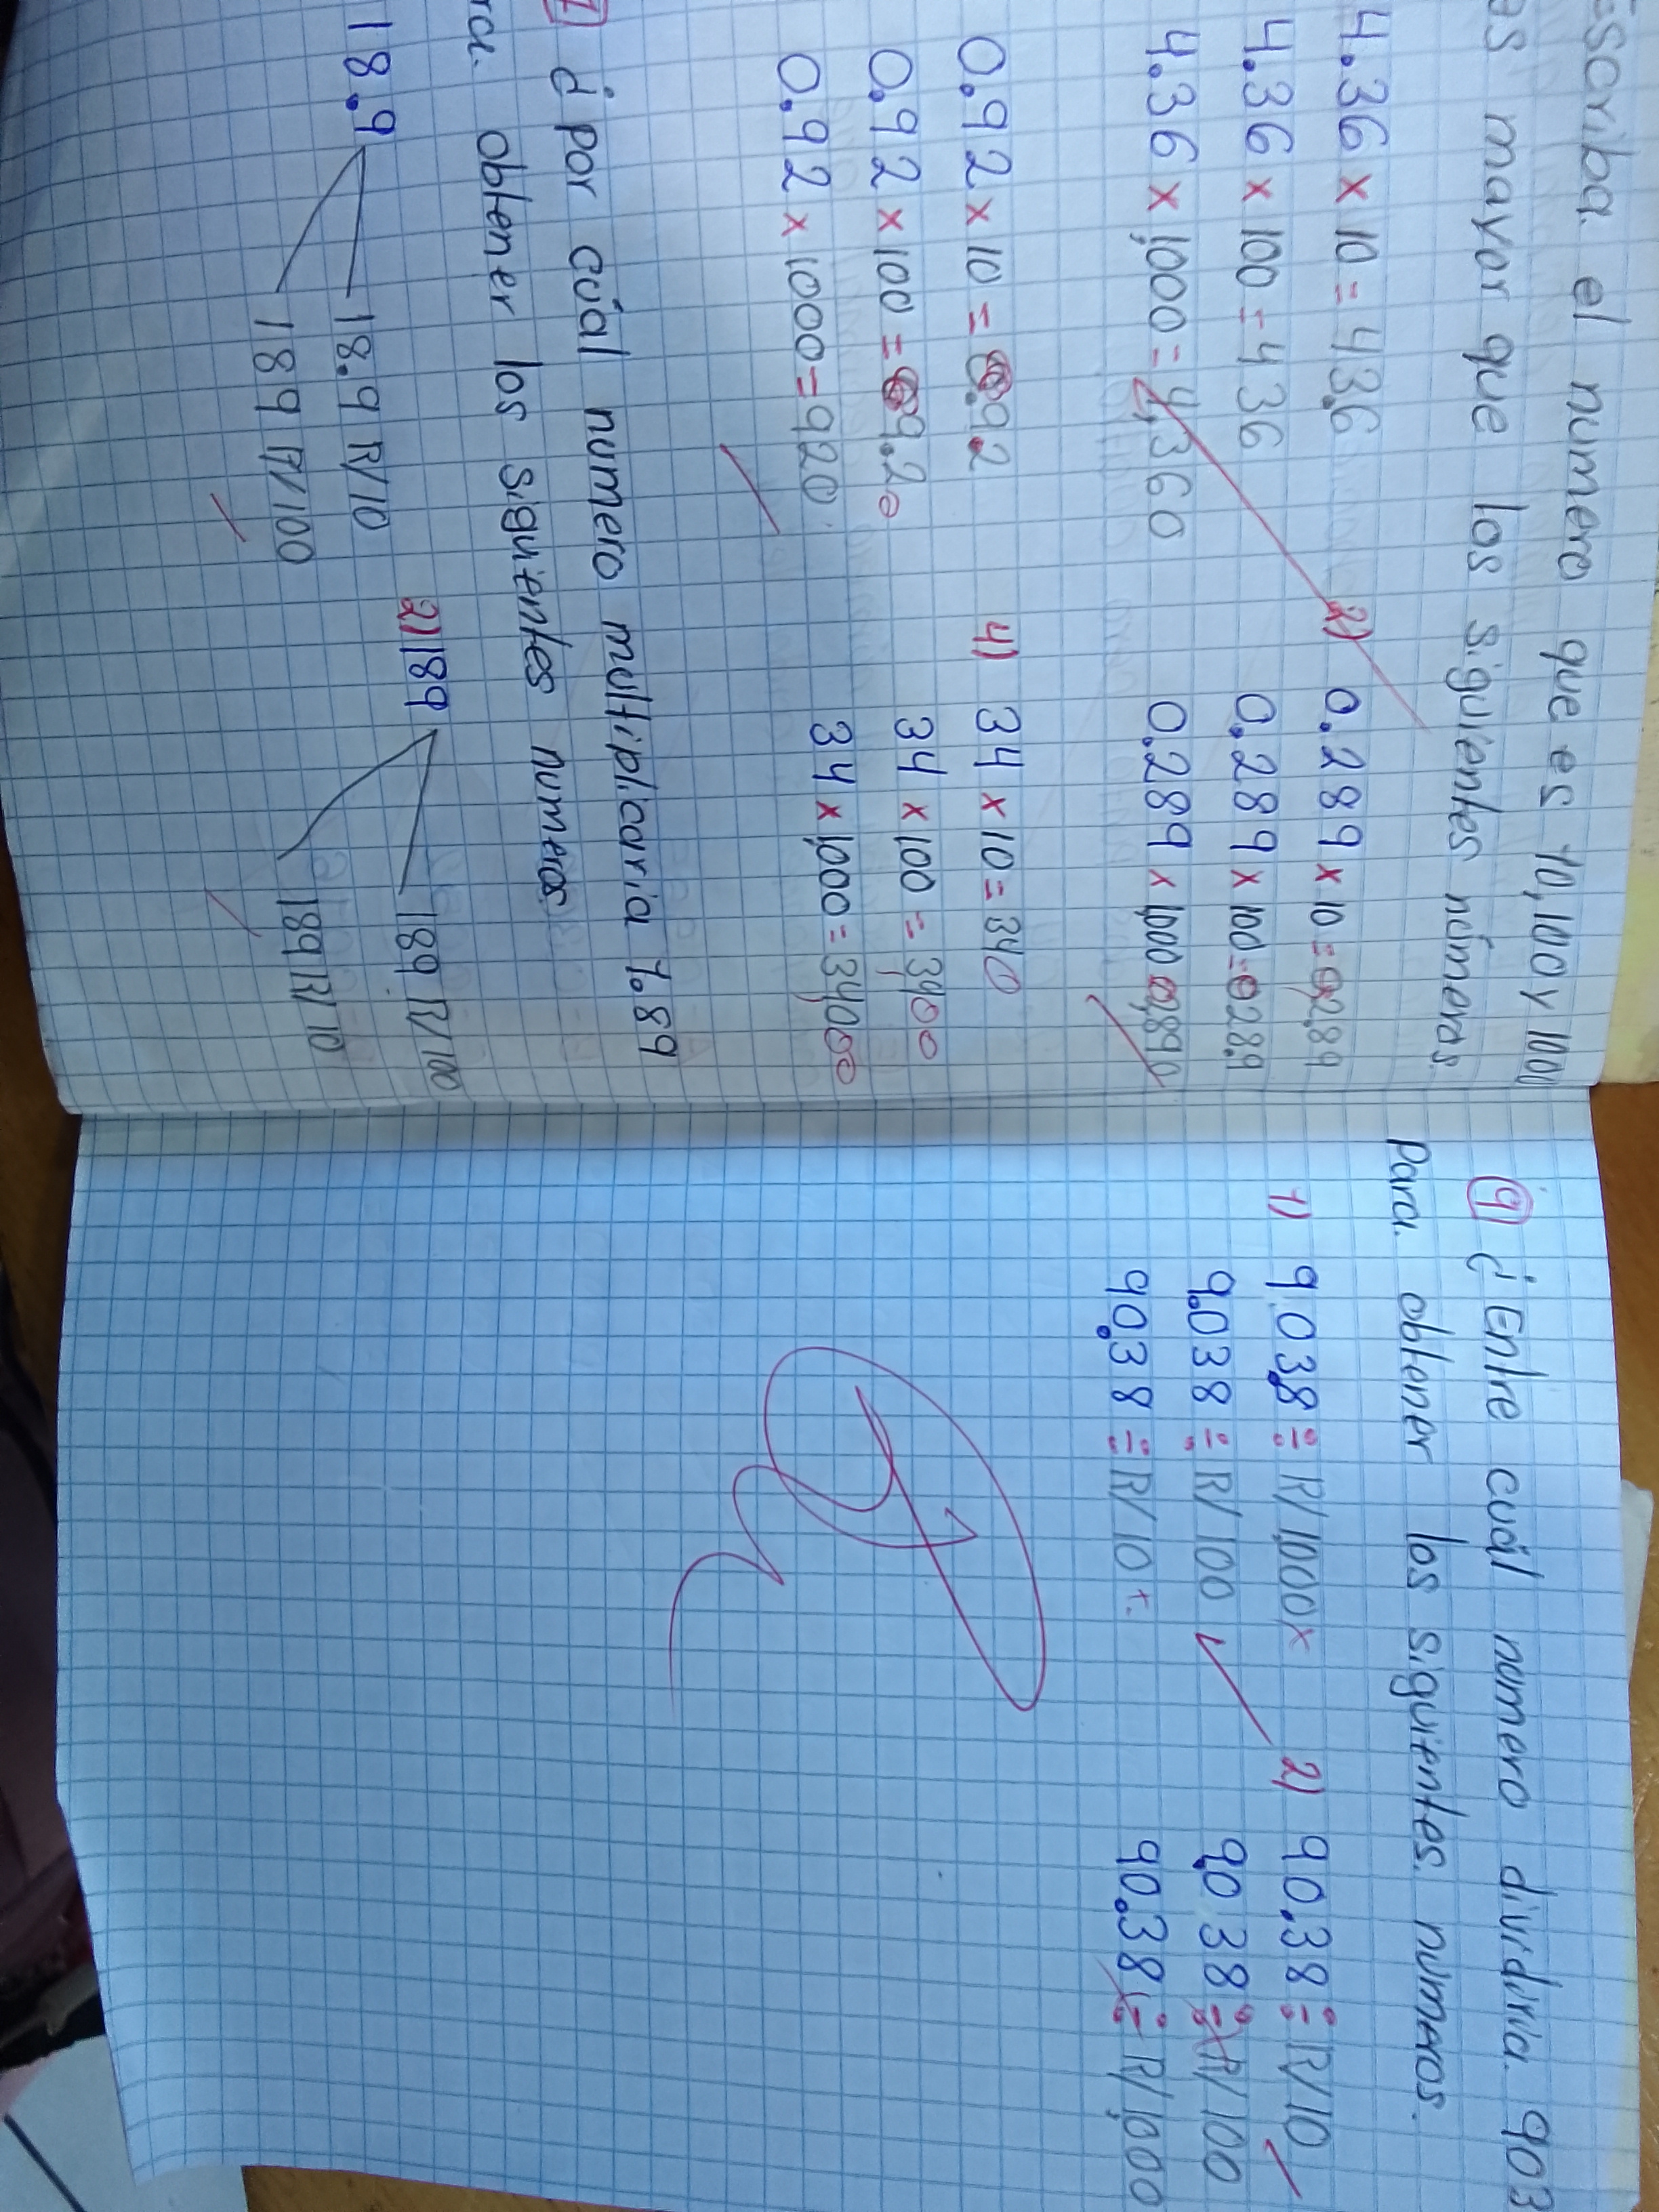 Escriba el numero que es 10, 100 y 1000
es mayor que los siguientes números.
4.36 x 10 = 43.6
4.36 x 100 = 436
4.36 x 1,000 = 4,360
2) 0.289 x 10 = 2.89
0.289 x 100 = 28.9
0.289 x 1,000 = 289
0.92 x 10 = 9.2
0.92 x 100 = 92
0.92 x 1000 = 920
4) 34 x 10 = 340
34 x 100 = 3,400
34 x 1,000 = 34,000
¿ por cuál numero multiplicaria 1.89
obtener los siguientes numeros
18.9
18.9 R/ 10
189 R/ 100
2) 189
189 R/ 100
189 R/ 10
9 ¿ Entre cuál numero dividiria 903
Para obtener los siguientes numeros.
1) 903.8 ÷ R/ 1,000 x
9.038 ÷ R/ 100
90.38 ÷ R/ 10
2) 90.38 ÷ R/ 10
9.038 ÷ R/ 100
90.38 ÷ R/ 1,000